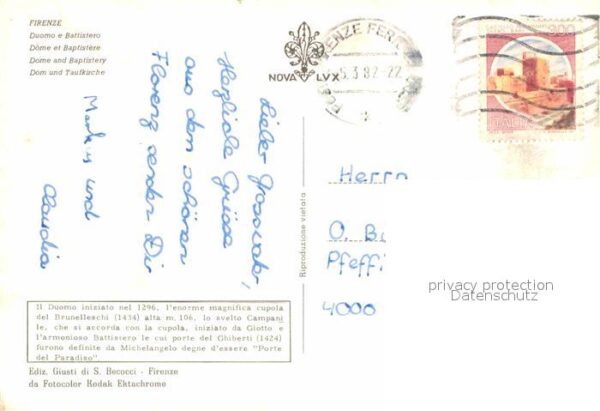 FIRENZE
Duomo e Battistero
Dôme et Baptistère
Dome and Baptistery
Dom und Taufkirche
NOVA LVX
5.3.82-22
200
Lieber Grossvater,
Herzliche Grüsse
aus dem schönen
Florenz senden Dir
Markus und
Claudia
Herrn
O. B
Pfeffi
4000
privacy protection
Datenschutz
Riproduzione vietata
Il Duomo iniziato nel 1296, l'enorme magnifica cupola
del Brunelleschi (1434) alta m. 106, lo svelto Campani
le, che si accorda con la cupola, iniziato da Giotto e
l'armonioso Battistero le cui porte del Ghiberti (1424)
furono definite da Michelangelo degne d'essere "Porte
del Paradiso".
Ediz. Giusti di S. Becocci - Firenze
da Fotocolor Kodak Ektachrome